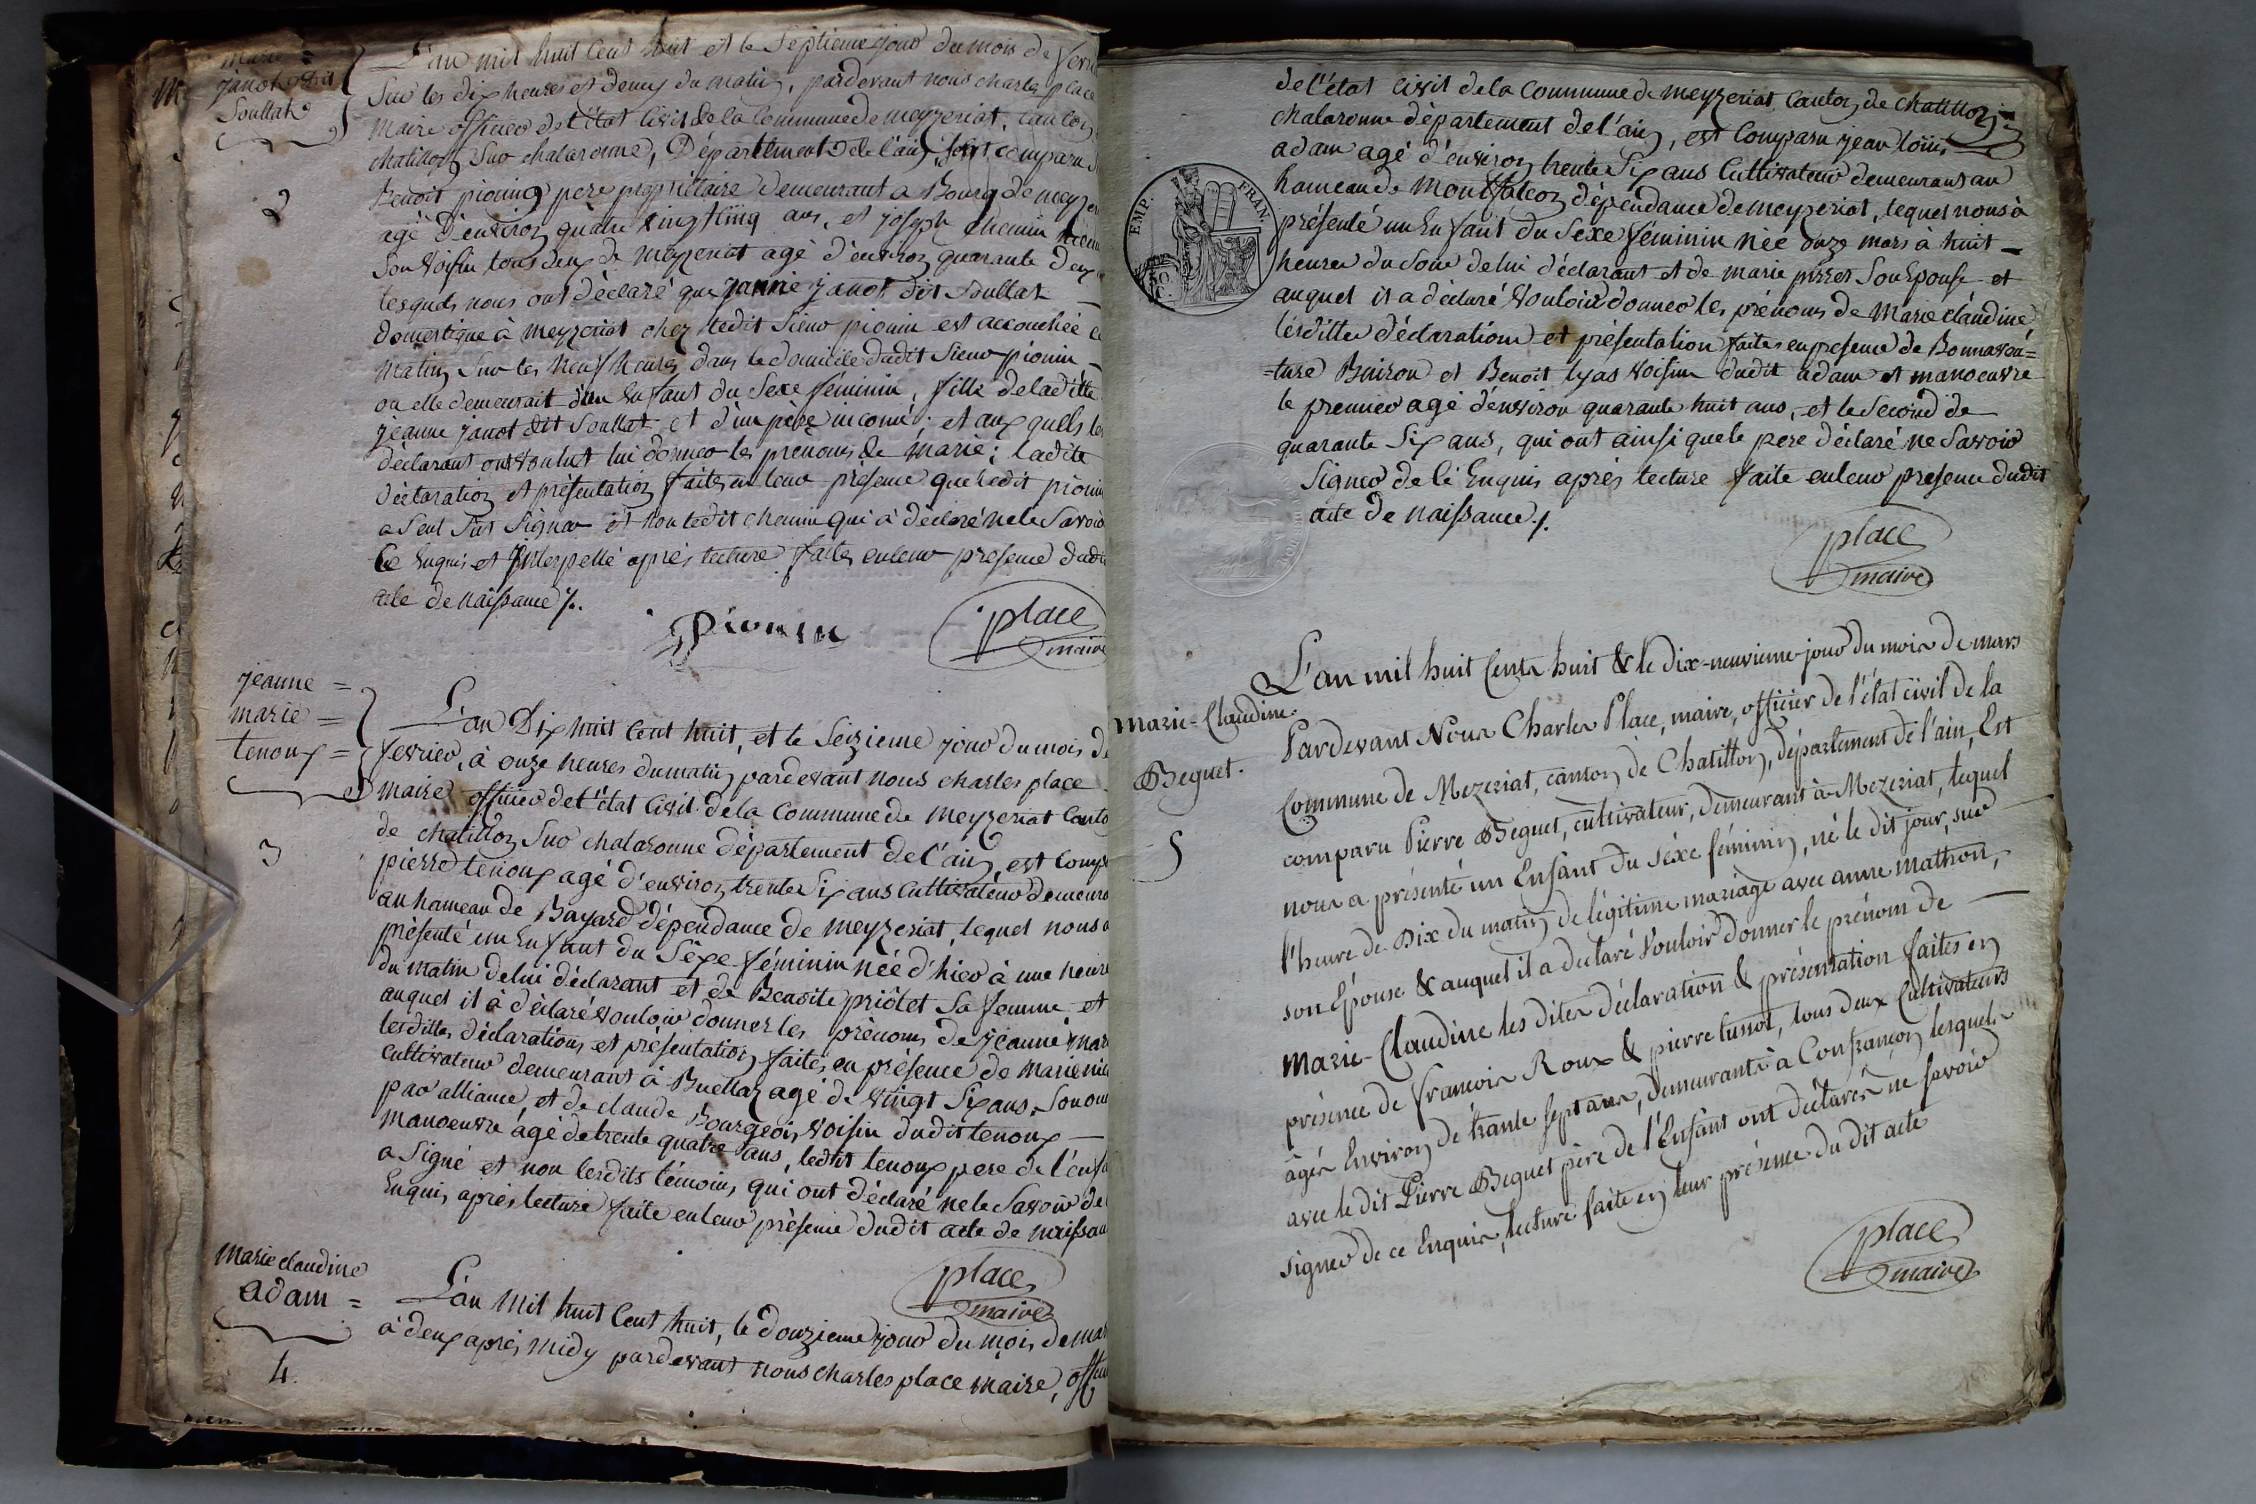 Marie =
janot dit
Soultat
2
L'an mil huit Cent huit et le Septieme jour du mois de fevri
Sur les dix heures et demy du matin, pardevant nous charles place
maire officier de l'état Civil de la Commune de meyzeriat, Canton
chatillon Sur chalaronne, Département de l'ain, Sont comparu
Benoit pionin pere proprietaire demeurant a Bourg de meyzer
agé d'environ quatre vingt Cinq ans, et joseph chemin
Son voisin tous deux de meyzeriat agé d'environ quarante deux
lesquels nous ont déclaré que jeanne janot dit Soultat
domestique à meyzeriat chez ledit Sieur pionin est accouchée ce
matin Sur les neuf heures dans le domicile dudit Sieur pionin
ou elle demeurait d'un Enfant du Sexe feminin, fille de laditte
jeanne janot dit Soultat et d'un père inconnu; et aux quels les
déclarant ont voulut lui donner les prenoms de marie; ladite
déclaration et présentation faites en leur présence que ledit pionin
a Seul Sut Signer et non ledit chemin qui à déclaré ne le Savoir
Ce Enquis et Interpellé après lecture faite en leur presence dudit
acte de naissance ./.
Pionin
place
maire
jeanne =
marie =
tenoux =
3
L'an Dix huit Cent huit, et le Seizieme jour du mois de
fevrier, à onze heures du matin pardevant nous charles place
maire officier de l'état Civil de la Commune de meyzeriat Canto
de chatillon Sur chalaronne département de l'ain, est Comp
pierre tenoux agé d'environ trente Six ans Cultivateur demeura
au hameau de Bayard dépendance de meyzeriat, lequel nous a
présenté un Enfant du Sexe féminin née d'hier à une heure
du matin de lui déclarant et de Benoite priôlet Sa femme et
auquel il à déclaré vouloir donner les prénoms de jeanne mar
lesdittes déclarations et présentation faites en présence de marie
cultivateur demeurant à Buellaz agé de vingt Six ans, Son on
par alliance, et de claude Bourgeois voisin dudit tenoux
manoeuvre agé de trente quatre ans, ledit tenoux pere de l'enfa
a Signé et non lesdits témoins, qui ont déclaré ne le Savoir de
Enquis, après lecture faite en leur présence dudit acte de naissan
place
maire
marie claudine
adam =
4.
L'an Mil huit Cent huit, le douzieme jour du mois de mar
à deux après midy pardevant nous charles place maire, offici
de l'état Civil de la Commune de meyzeriat, Canton de chatillon
chalaronne département de l'ain, est Comparu jean Loüis
adam agé d'environ trente Six ans Cultivateur demeurant au
hameau de montfalcon dépendance de meyzeriat, lequel nous à
EMP. FRAN.
présenté un Enfant du Sexe féminin née onze mars à huit
heures du Soir de lui déclarant et de marie Son Epouse et
auquel il a déclaré vouloir donner les prénoms de Marie claudine,
lesdittes déclarations et présentation faites en presence de Bonnaven=
=ture Buiron et Benoit lyas voisins dudit adam et manoeuvre
le premier agé d'environ quarante huit ans, et le Second de
quarante Six ans, qui ont ainsi que le pere déclaré ne Savoir
Signer de Ce Enquis après lecture faite en leur presence dudit
acte de naissance ./.
place
maire
Marie-Claudine.
Beguet.
5
L'an mil huit Cents huit & le dix-neuvieme jour du mois de mars
Pardevant Nous Charles Place, maire, officier de l'état civil de la
Commune de Mezeriat, canton de Chatillon, département de l'ain, Est
comparu Pierre Beguet, cultivateur, demeurant à Mezeriat, lequel
nous a présenté un Enfant du séxe féminin, né le dit jour, sur
l'heure de Dix du matin de légitime mariage avec anne mathon,
son Épouse & auquel il a declaré Vouloir donner le prénom de
Marie-Claudine les dites déclaration & présentation faites en
présence de François Roux & pierre tussot, tous deux Cultivateurs
âgés Environ de trante sept ans, demeurants à Confrançon lesquels
avec le dit Pierre Beguet père de l'Enfant ont déclarés ne sçavoir
signer de ce Enquis, lecture faite en leur présence du dit acte
place
maire